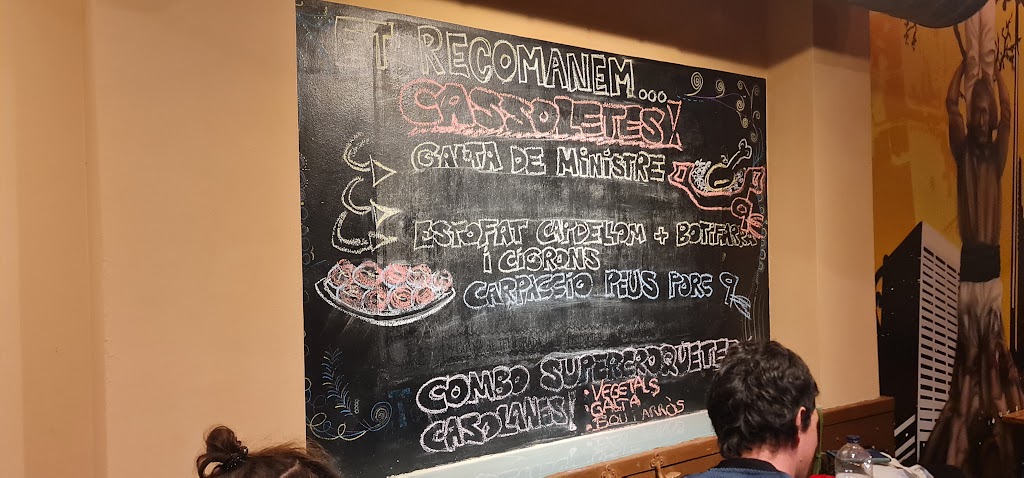 ET RECOMANEM...
CASSOLETES!
GALTA DE MINISTRE
ESTOFAT CAPDELLOM + BOTIFARRA
I CIGRONS
CARPACCIO PEUS PORC
COMBO SUPERCROQUETES
CASOLANES!
• VEGETALS
GALTA
• BOU I ARRÒS